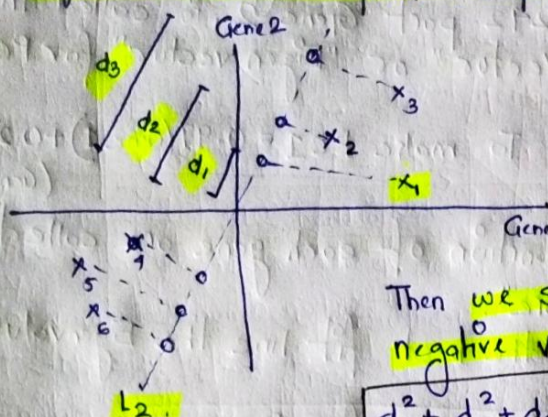 Gene 2
d3
d2
d1
x3
x2
x1
Gene
4
5
6
L2
Then we s
negative v
d² + d² + d